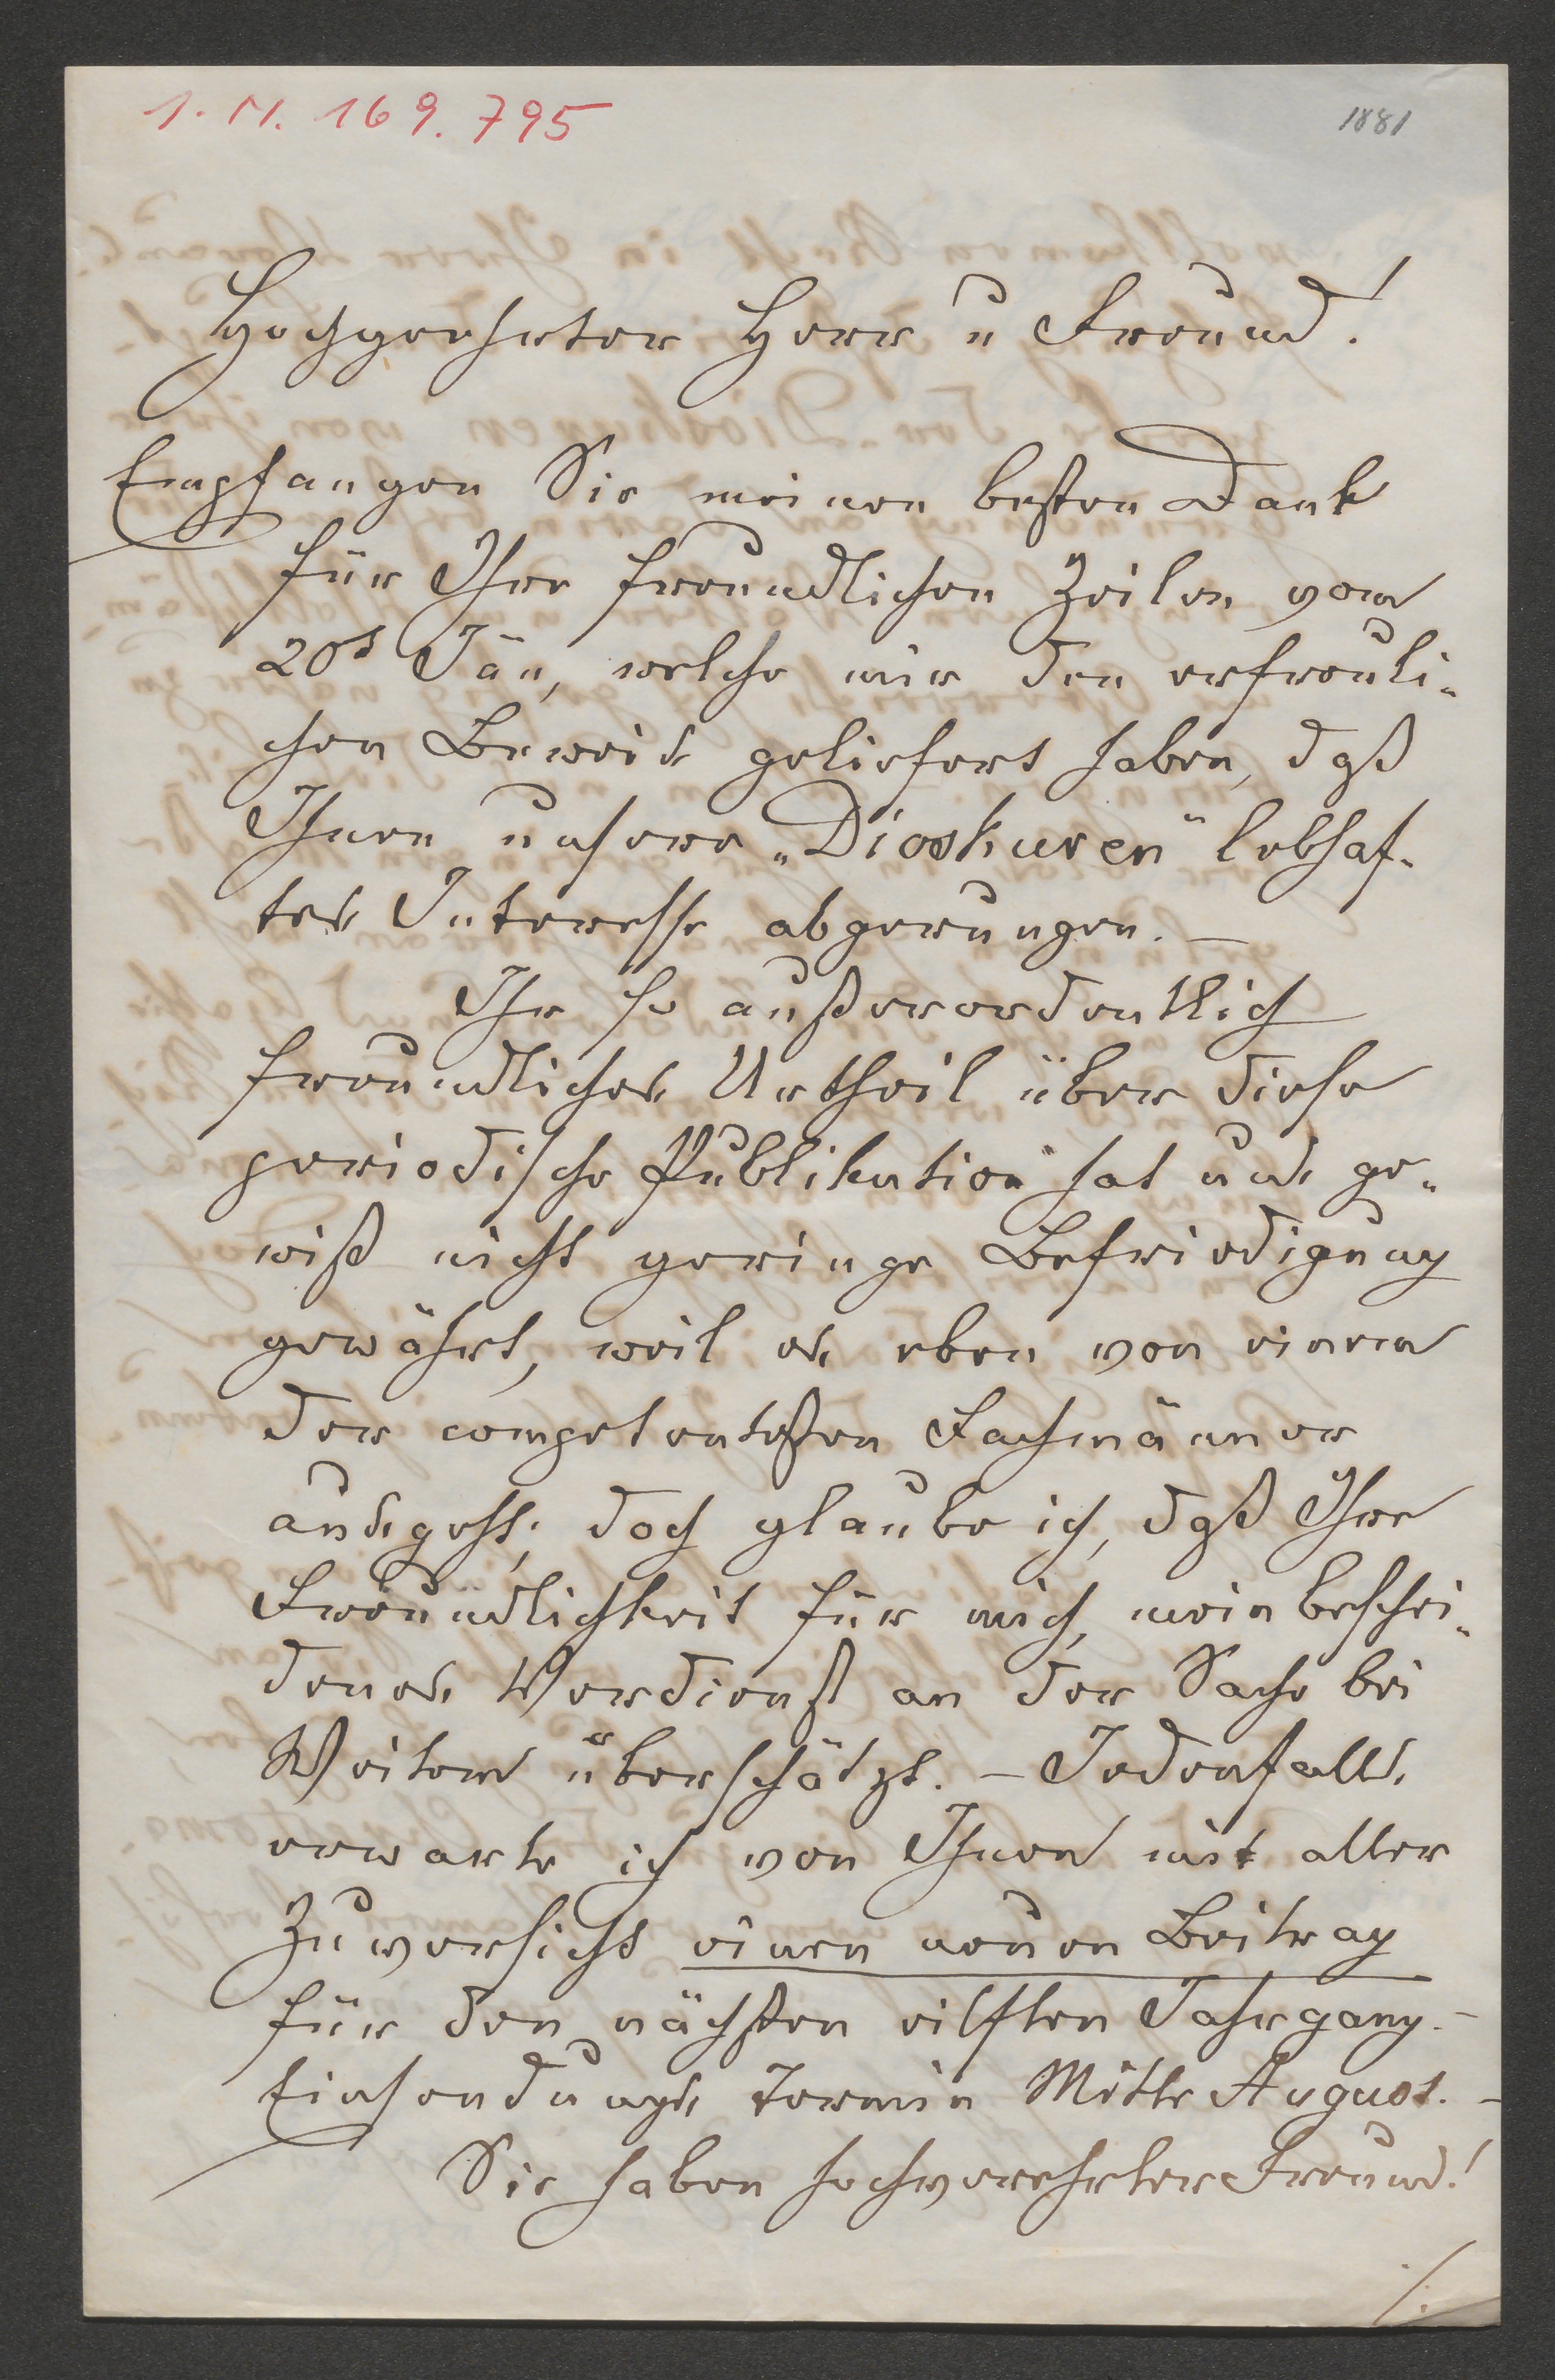 I. N. 169.795
1881
Hochgeehrter Herr u Freund!
Empfangen Sie meinen besten Dank
für Ihre freundlichen Zeilen vom
20t Jän, welche mir den erfreuli-
chen Beweis geliefert haben, daß
Ihnen unsere „Dioskuren" lebhaf-
tes Interesse abgerungen. –
Ihr so außerordentlich
freundliches Urtheil über diese
periodische Publikation hat uns ge-
wiß nicht geringe Befriedigung
gewährt, weil es eben von einem
der competentesten Fachmänner
ausgeht; doch glaube ich, daß Ihre
Freundlichkeit für mich, mein beschei-
denes Verdienst an der Sache bei
Weitem überschätzt. – Jedenfalls
erwarte ich von Ihnen mit aller
Zuversicht einen neuen Beitrag
für den nächsten eilften Jahrgang. –
Einsendungs Termin Mitte August. –
Sie haben hochverehrter Freund!
./.